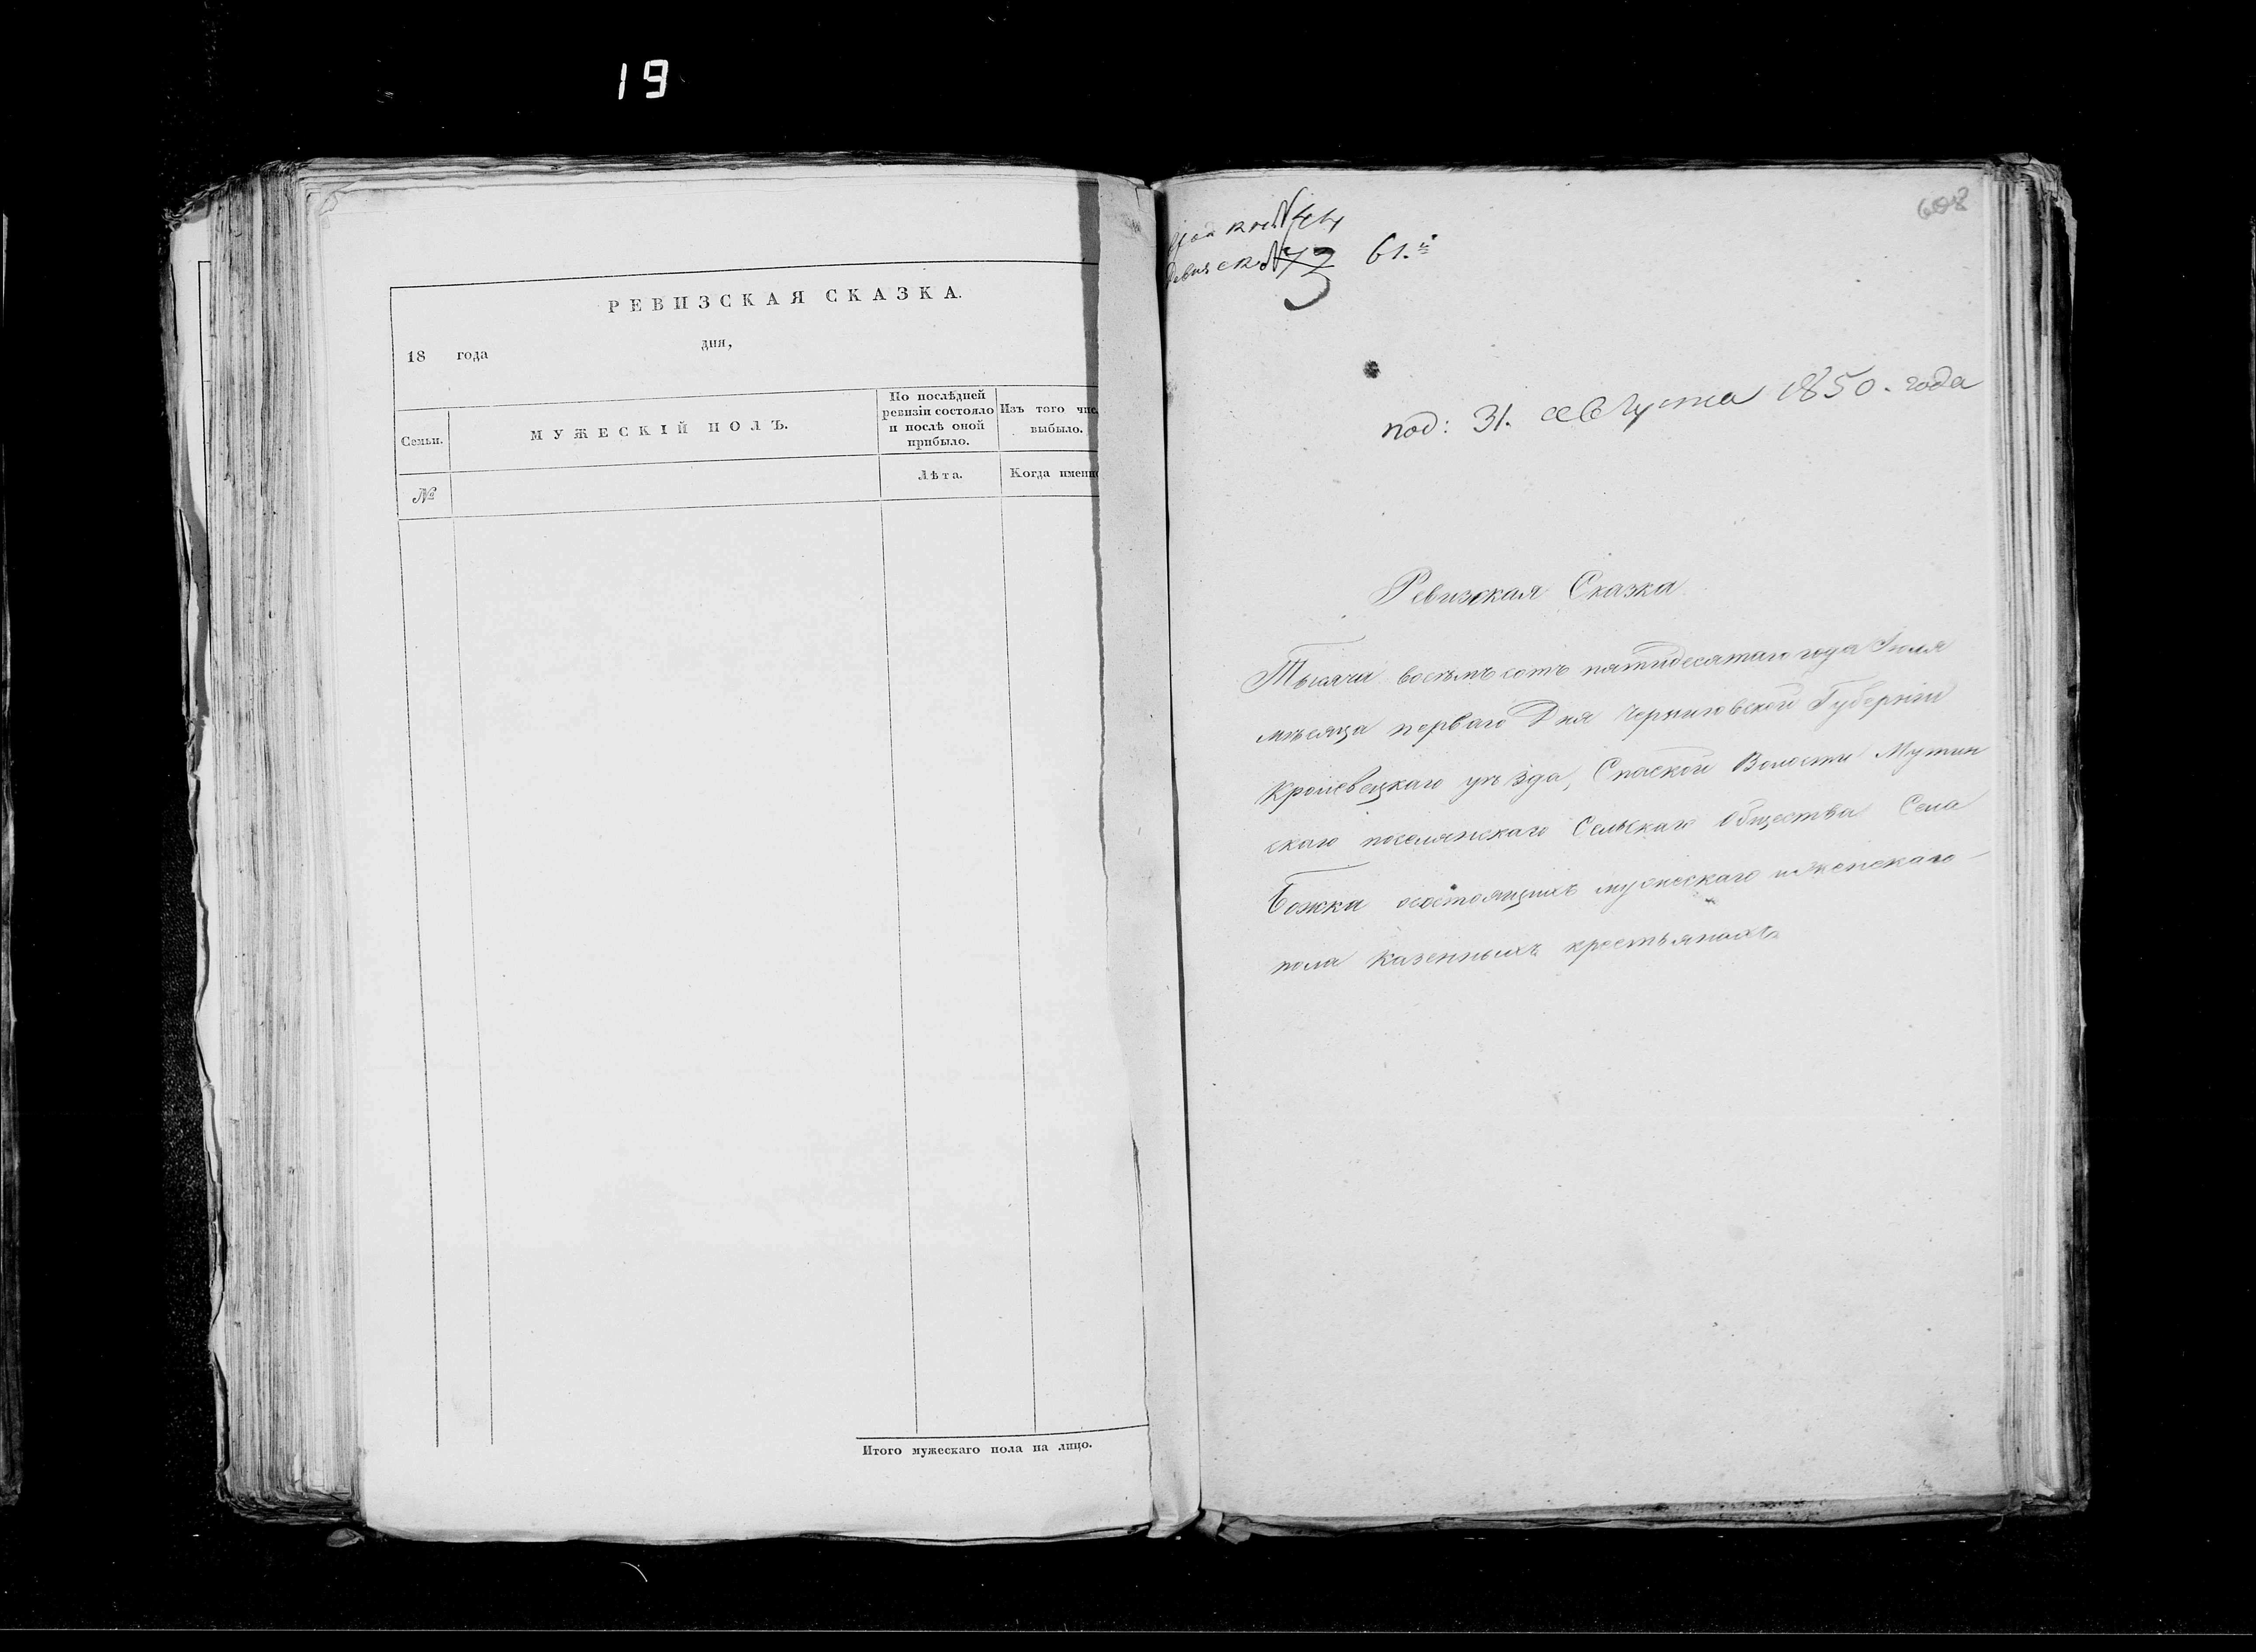 19
РЕВИЗСКАЯ СКАЗКА.
18 года дня,
Семьи.
МУЖЕСКІЙ ПОЛЪ.
По послѣдней
ревизіи состояло
и послѣ оной
прибыло.
Изъ того чис
выбыло.
№
Лѣта.
Когда именн
Итого мужескаго пола на лицо.
61.й
под: 31. августа 1850. года
Ревизская Сказка
Тысяча восемьсотъ пятидесятаго года Іюля
мѣсяца перваго Дня Черниговской Губерніи
Кролевецкаго уѣзда, Спаской Волости Мутин
скаго поселянскаго Сельскаго Общества Села
Божка осостоящихъ мужескаго и женскаго
пола казенныхъ крестьянахъ